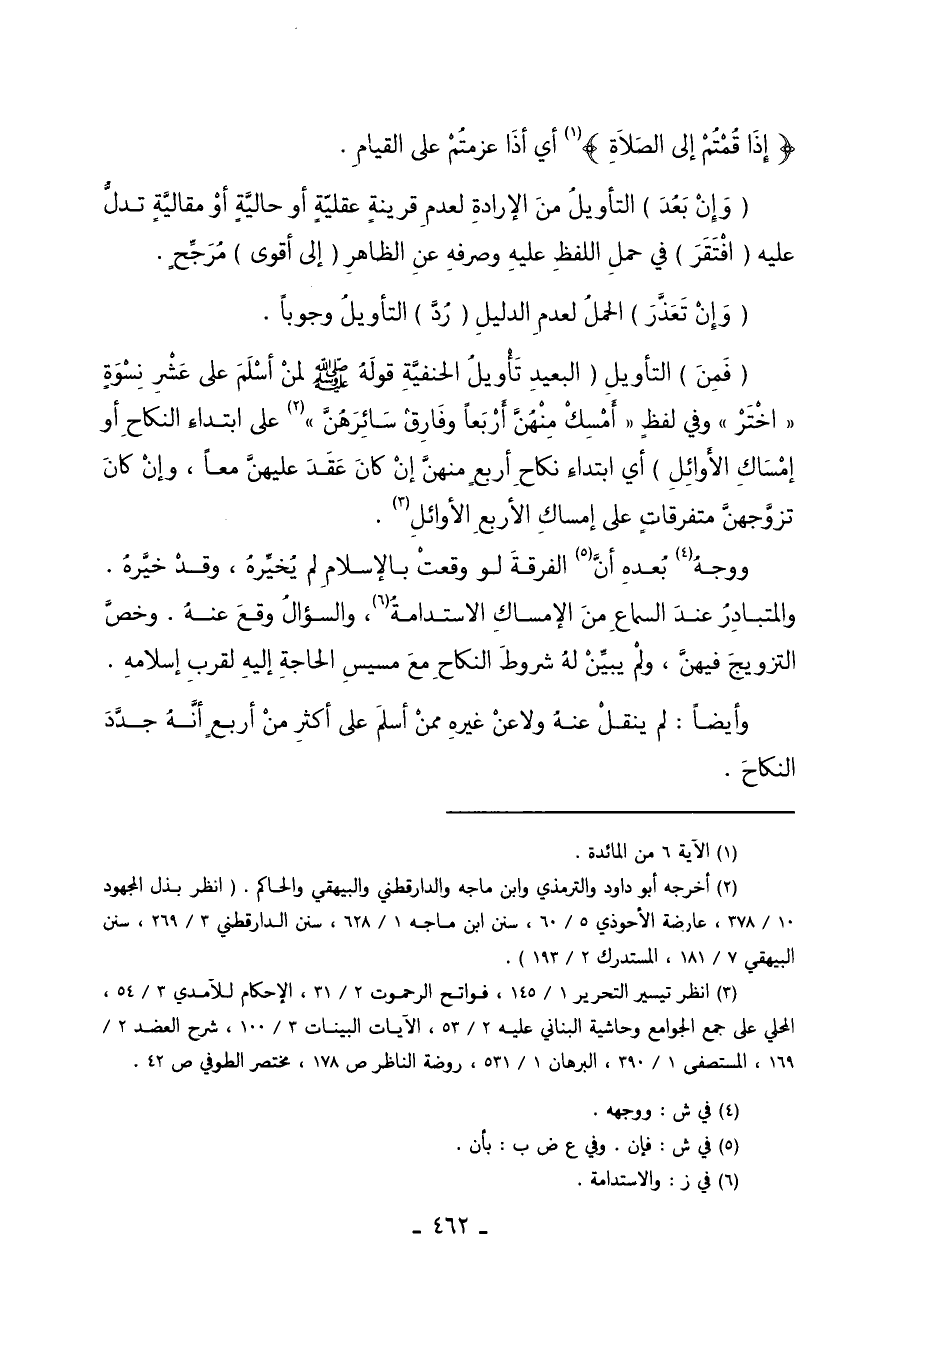 ﴿ إِذَا قُمْتُمْ إلى الصَلاَةِ ﴾(١) أي أذَا عزمتُمْ على القيامِ .
( وَإِنْ بَعُدَ ) التأويلُ منَ الإرادةِ لعدمِ قرينةٍ عقليّةٍ أو حاليَّةٍ أوْ مقاليَّةٍ تـدلُّ
عليه ( افْتَقَرَ ) في حملِ اللفظِ عليهِ وصرفهِ عنِ الظاهرِ ( إلى أقوى ) مُرَجِّحٍ .
( وَإِنْ تَعَذَّرَ ) الحملُ لعدمِ الدليلِ ( رُدَّ ) التأويلُ وجوباً .
( فَمِنَ ) التأويلِ ( البعيدِ تَأْوِيلُ الحنفيَّةِ قولَهُ ﷺ لمنْ أسْلَمَ على عَشْرِ نِسْوَةٍ
« اخْتَرْ » وفي لفظٍ « أَمْسِكْ مِنْهُنَّ أَرْبَعاً وفَارِقْ سَائِرَهُنَّ »(٢) على ابتـداء النكاحِ أو
إمْسَاكِ الأوائِلِ ) أي ابتداء نكاحِ أربعٍ منهنَّ إنْ كانَ عَقَدَ عليهنَّ معـاً ، وإنْ كانَ
تزوَّجهنَّ متفرقاتٍ على إمساكِ الأربعِ الأوائلِ(٣) .
ووجـهُ(٤) بُعـدهِ أنَّ(٥) الفرقـةَ لـو وقعتْ بـالإسـلامِ لم يُخيِّرهُ ، وقـدْ خيَّرهُ .
والمتبـادرُ عنـدَ السماعِ منَ الإمسـاكِ الاستـدامـةُ(٦)، والسـؤالُ وقـعَ عنـهُ . وخصَّ
التزويجَ فيهنَّ ، ولمْ يبيِّنْ لهُ شروطَ النكاحِ معَ مسيسِ الحاجةِ إليهِ لقربِ إسلامهِ .
وأيضـاً : لم ينقـلْ عنـهُ ولاعنْ غيرهِ ممنْ أسلمَ على أكثرِ منْ أربعٍ أنَّـهُ جـدَّدَ
النكاحَ .
(١) الآية ٦ من المائدة .
(٢) أخرجه أبو داود والترمذي وابن ماجه والدارقطني والبيهقي والحاكم . ( انظر بـذل المجهود
١٠ / ٣٧٨ ، عارضة الأحوذي ٥ / ٦٠ ، سنن ابن مـاجـه ١ / ٦٢٨ ، سنن الـدارقطني ٣ / ٢٦٩ ، سنن
البيهقي ٧ / ١٨١ ، المستدرك ٢ / ١٩٣ ) .
(٣) انظر تيسير التحرير ١ / ١٤٥ ، فـواتـح الرحموت ٢ / ٣١ ، الإحكام لـلآمـدي ٣ / ٥٤ ،
المحلي على جمع الجوامع وحاشية البناني عليـه ٢ / ٥٣ ، الآيـات البينـات ٣ / ١٠٠ ، شرح العضـد ٢ /
١٦٩ ، المستصفى ١ / ٣٩٠ ، البرهان ١ / ٥٣١ ، روضة الناظر ص ١٧٨ ، مختصر الطوفي ص ٤٢ .
(٤) في ش : ووجهه .
(٥) في ش : فإن . وفي ع ض ب : بأن .
(٦) في ز : والاستدامة .
ـ ٤٦٢ ـ